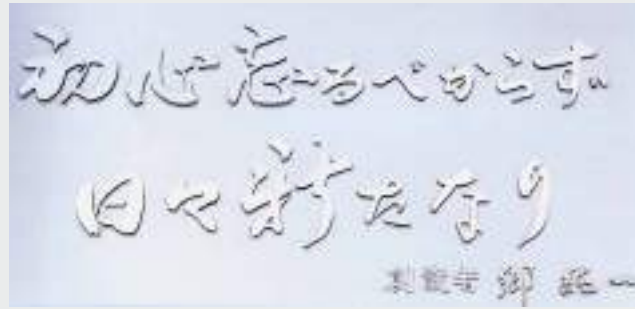 初心忘るべからず
日々新たなり
創設者 郷 一